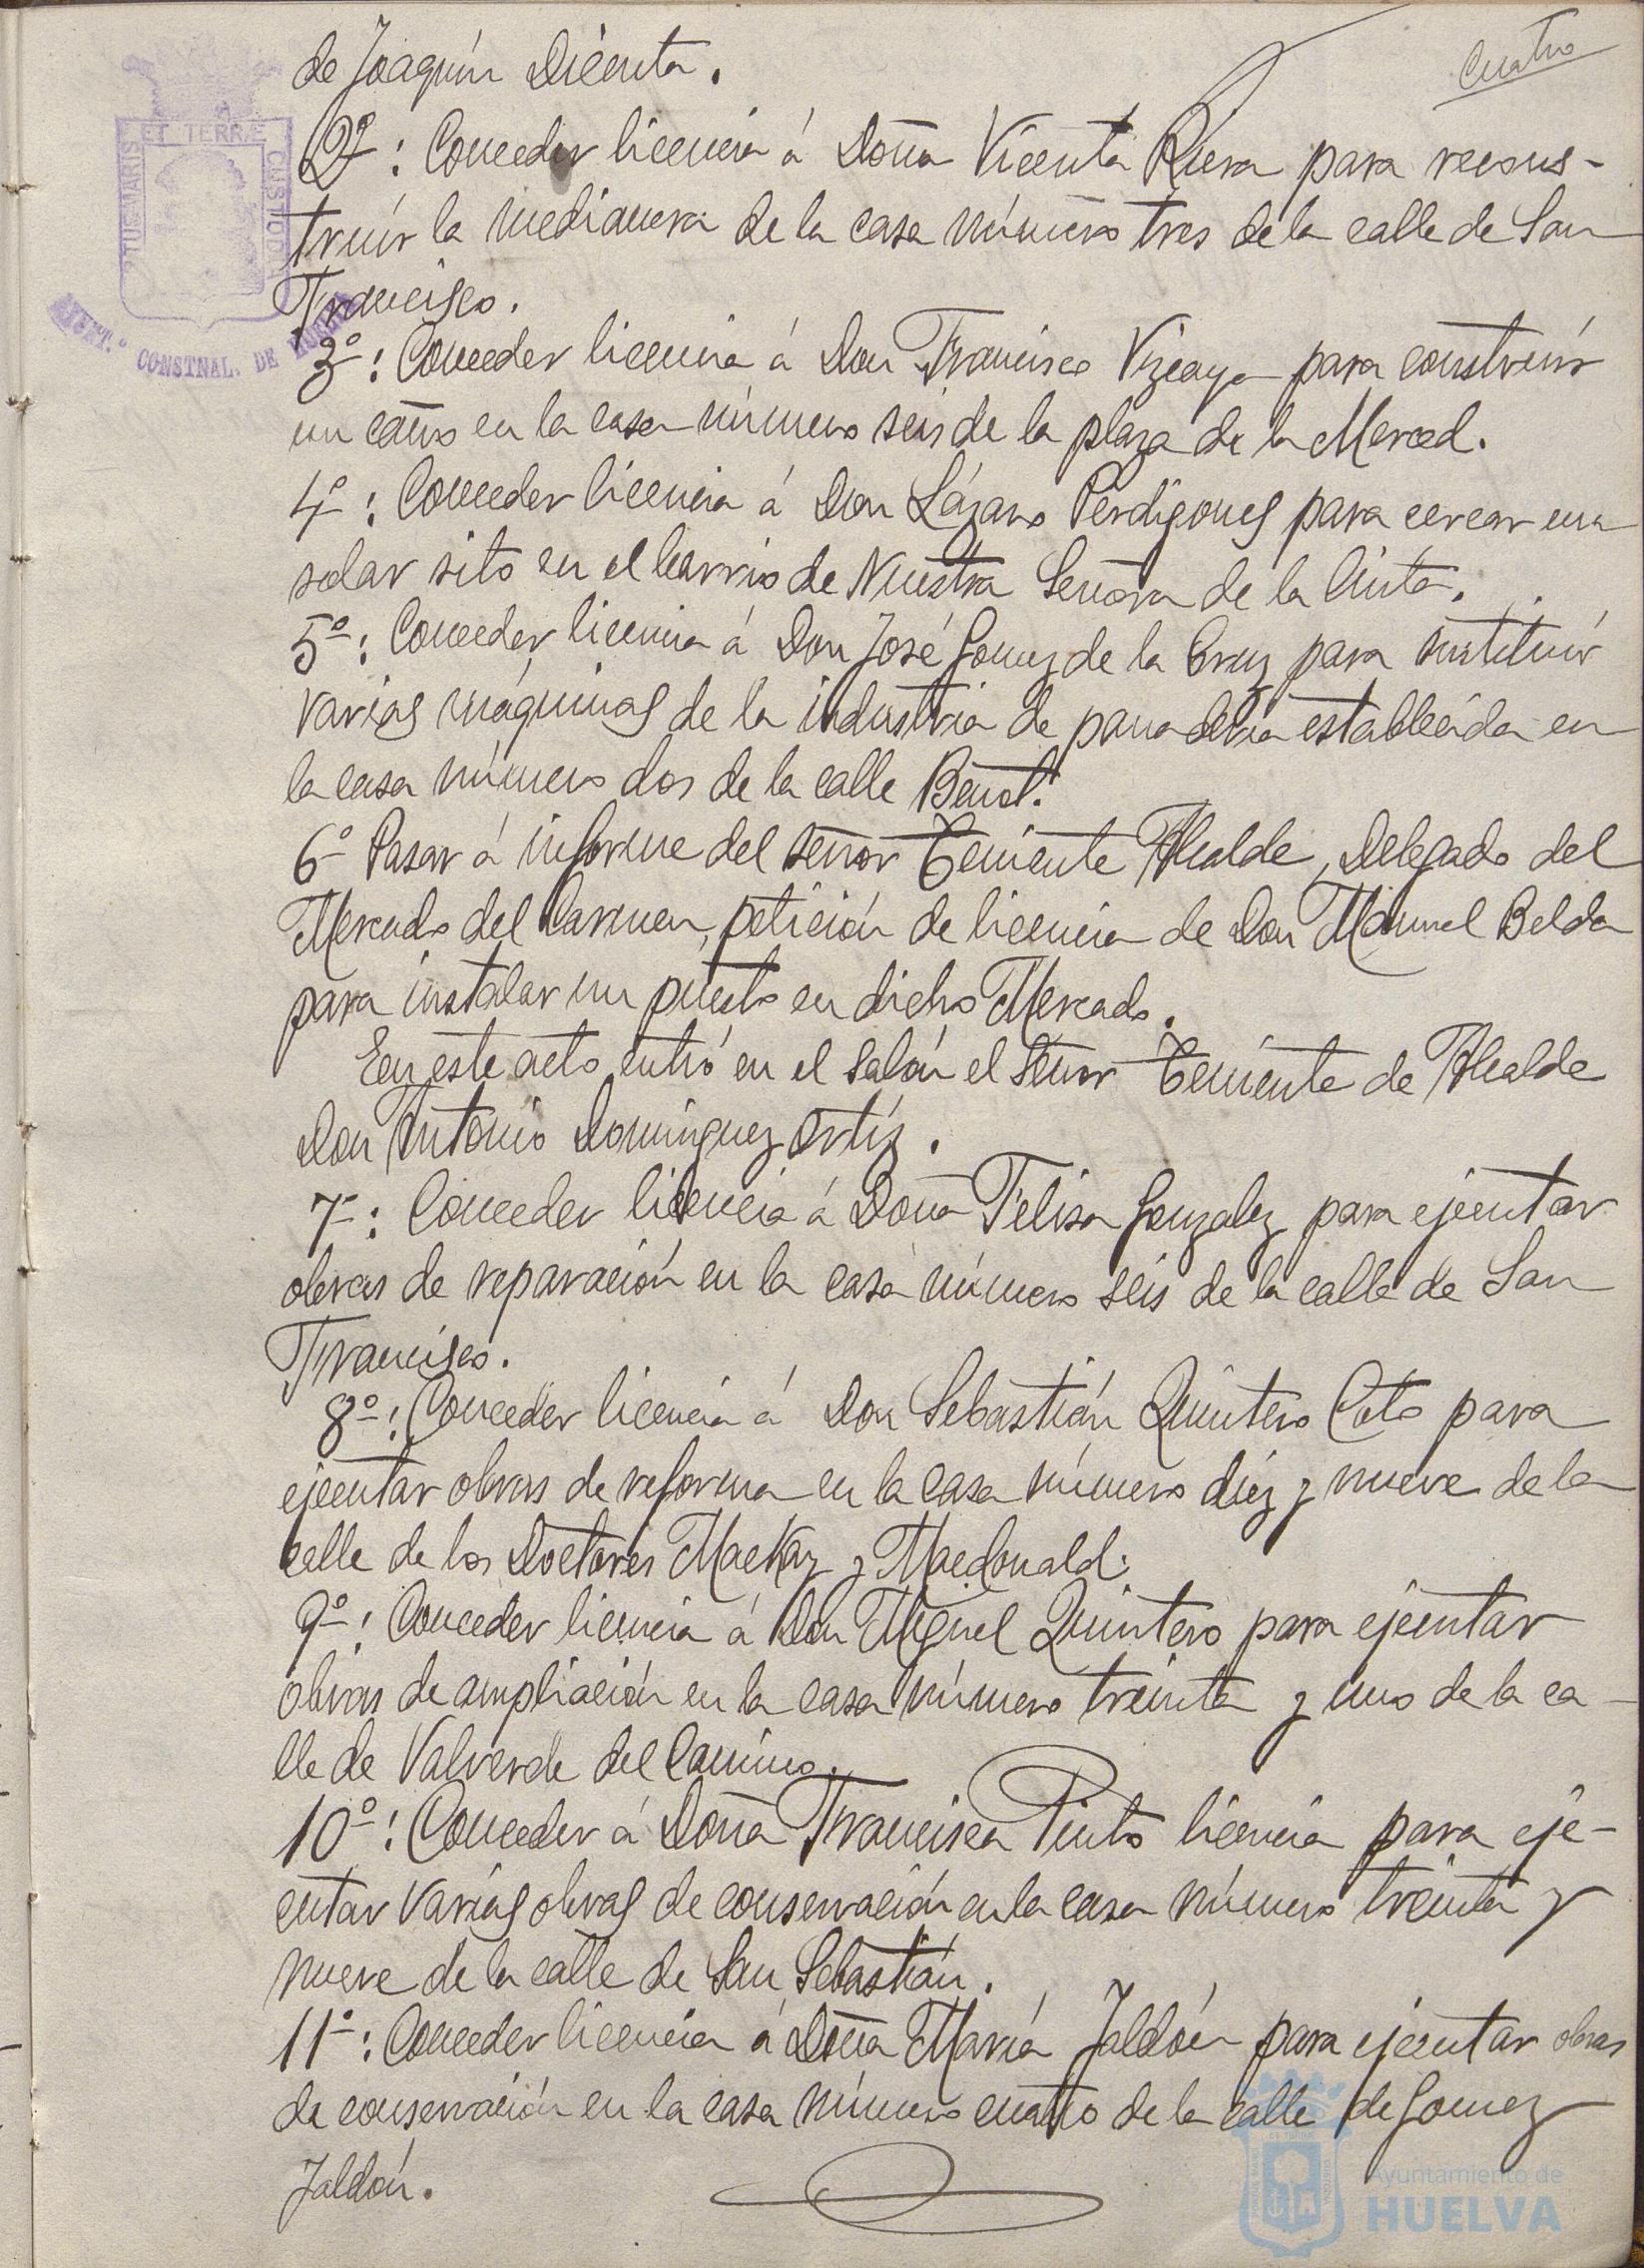 Cuatro
de Joaquín Dicenta.
2º: Conceder licencia á Doña Vicenta Riera para recons-
truír la medianera de la casa número tres de la calle de San
Francisco.
3º: Conceder licencia á Don Francisco Vizcaya para construír
un caño en la casa número seis de la plaza de la Merced.
4º: Conceder licencia á Don Lázaro Perdigones para cercar un
solar sito en el barrio de Nuestra Señora de la Cinta.
5º: Conceder licencia á Don José Gomez de la Cruz para sustituír
varias máquinas de la industria de panadería establecida en
la casa número dos de la calle Bénot.
6º Pasar á informe del señor Teniente Alcalde, Delegado del
Mercado del Carmen, petición de licencia de Don Manuel Belda
para instalar un puesto en dicho Mercado.
En este acto entró en el Salón el señor Teniente de Alcalde
Don Antonio Domínguez Ortíz.
7º: Conceder licencia á Doña Felisa Gonzalez para ejecutar
obras de reparación en la casa número seis de la calle de San
Francisco.
8º: Conceder licencia á Don Sebastián Quintero Coto para
ejecutar obras de reforma en la casa número diez y nueve de la
calle de los Doctores Mackay y Macdonald.
9º: Conceder licencia á Don Miguel Quintero para ejecutar
obras de ampliación en la casa número treinta y uno de la ca-
lle de Valverde del Camino.
10º: Conceder á Doña Francisca Pinto licencia para eje-
cutar varias obras de conservación en la casa número treinta y
nueve de la calle de San Sebastián.
11º: Conceder licencia á Doña María Jaldón para ejecutar obras
de conservación en la casa número cuatro de la calle de Gomez
Jaldón.
ET TERRÆ
CUSTODIA
CONSTNAL. DE HUELVA
Ayuntamiento de
HUELVA